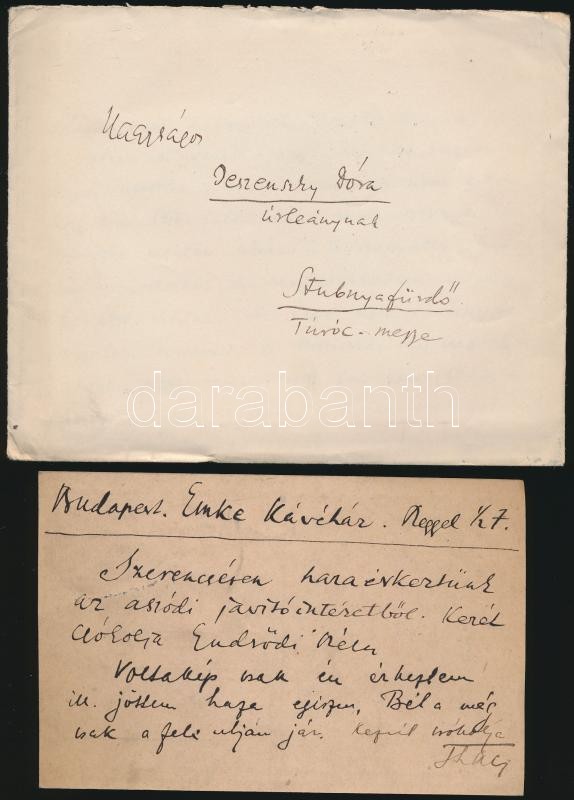 Nagyságos
Jeszenszky Dóra
úrleánynak
Stubnyafürdő.
Túróc-megye
darabanth
Budapest. Emke Kávéház. Reggel 1/2 7.
Szerencsésen hazaérkeztünk
az aszódi javítóintézetből. Kezét
csókolja Endrődi Béla
Voltakép csak én érkeztem
ill. jöttem haza egészen, Béla még
csak a fele utján jár. Kezeit csókolja